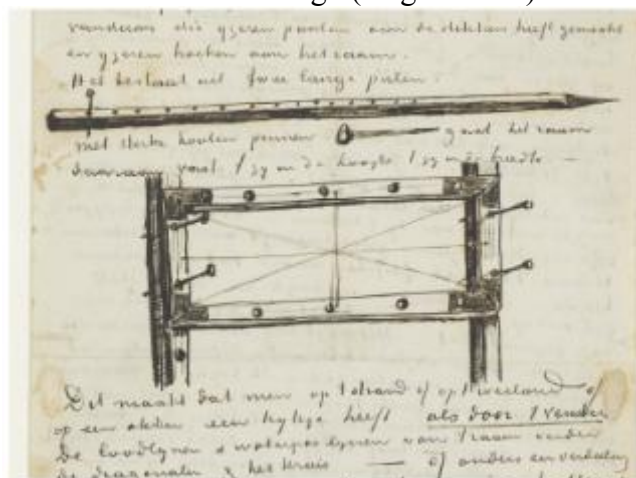 die yzeren punten aan de stokken heeft gemaakt
en yzeren hoeken aan het raam.
Het bestaat uit twee lange palen:
met sterke houten pennen gaat het raam
daaraan vast 't zy in de hoogte 't zy in de breedte —
Dit maakt dat men op 't strand of op 't weiland of
op een akker een kykje heeft als door 't venster
De loodlynen & waterpaslynen van 't raam verder
de diagonalen & het kruis — of anders een verdeeling